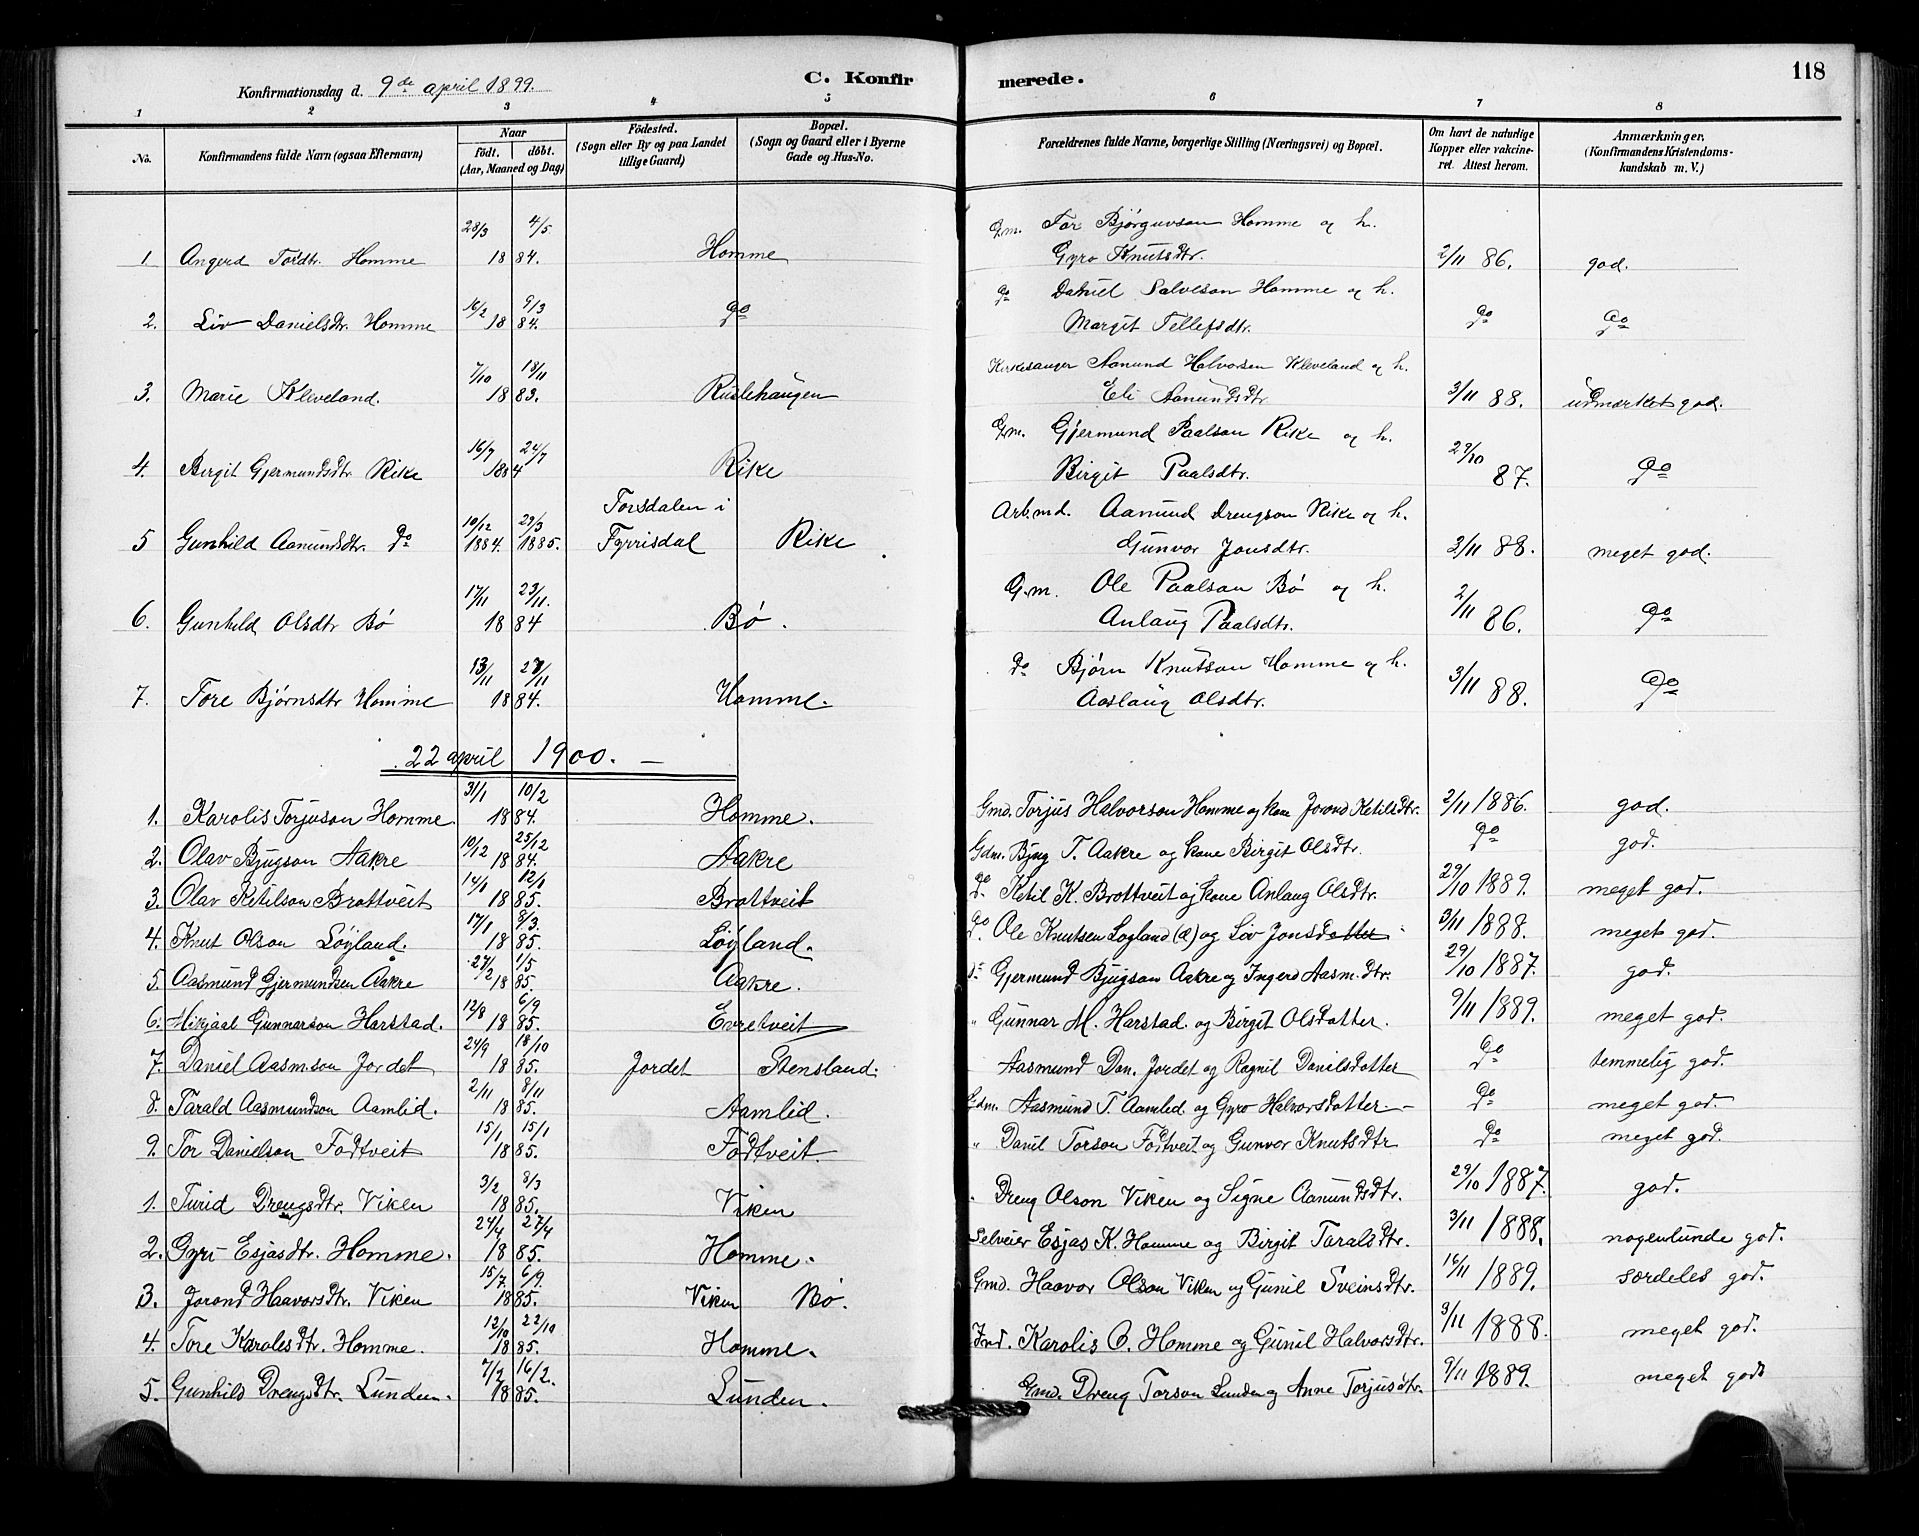 118
Konfirmationsdag d. 9de april 1899.
C. Konfirmerede.
1 2 3 4 5 6 7 8
No.
Konfirmandens fulde Navn (ogsaa Efternavn)
Naar
födt. döbt.
(Aar, Maaned og Dag)
Födested.
(Sogn eller By og paa Landet
tillige Gaard)
Bopæl.
(Sogn og Gaard eller i Byerne
Gade og Hus-No.
Forældrenes fulde Navne, borgerlige Stilling (Næringsvei) og Bopæl.
Om havt de naturlige
Kopper eller vakcine-
ret. Attest herom.
Anmærkninger.
(Konfirmandens Kristendoms-
kundskab m. V.)
28/3 4/5 Gm. Tor Bjørguvson Homme og h.
1. Angerd Tordtr. Homme 1884. Homme Gyro Knutsdtr. 2/11 86. god.
16/2 9/3 do Daniel Salveson Homme og h.
2. Liv Danielsdtr. Homme 1884. do Margit Tellefsdtr. do do
7/10 18/11 Kirkesanger Aanund Halvorsen Kleveland og h.
3. Marie Kleveland. 1883. Rislehaugen Eli Aanundsdtr. 3/11 88. udmærket god.
16/7 24/7 Gm. Gjermund Paalson Rike og h.
4. Birgit Gjermundsdtr. Rike 1884 Rike Birgit Paalsdtr. 29/10 87. do
10/12 29/3 Torsdalen i Arb.md. Aanund Drengson Rike og h.
5 Gunhild Aanundsdtr. do 1884. 1885. Fyrrisdal Rike Gunvor Jonsdtr. 2/11 88. meget god.
17/11 23/11. G.m. Ole Paalson Bø og h.
6. Gunhild Olsdtr Bø 1884 Bø. Anlaug Paalsdtr. 2/11 86. do
13/11 27/11 do Bjørn Knutson Homme og h.
7. Tore Bjørnsdtr Homme 1884. Homme. Aaslaug Olsdtr. 3/11 88. do
22 april 1900. —
1. Karolis Torjuson Homme. 31/1 10/2 1884. Homme. Gmd. Torjus Halvorson Homme og kone Jorond Ketilsdtr. 2/11 1886. god.
2. Olav Bjugson Aakre 10/12 25/12 1884. Aakre Gdm. Bjug T. Aakre og kone Birgit Olsdtr. do god.
3. Olav Ketilson Brottveit 14/1 12/1 1885. Brottveit do Ketil K. Brottveit og kone Anlaug Olsdtr. 29/10 1889. meget god.
4. Knut Olson Løyland. 17/1 8/3. 1885. Løyland. do Ole Knutsen Logland (d) og Liv Jonsdotter 3/11 1888. meget god.
5. Aasmund Gjermundsen Aakre 27/2 1/5 1885. Aakre. do Gjermund Bjugson Aakre og Ingerd Aasm.dtr. 29/10 1887. god.
6. Mikjaal Gunnarson Harstad. 12/8 6/9 1885. Evretveit " Gunnar M. Harstad. og Birgit Olsdotter. 9/11 1889. meget god.
7. Daniel Aasmson Jordet 24/9 18/10 1885. Jordet Stensland. Aasmund Dan. Jordet og Ragnil Danilsdotter do temmelig god.
8. Tarald Aasmundson Aamlid. 2/11 8/11 1885. Aamlid. Gdm. Aasmund T. Aamlid. og Gyro Halvorsdotter — do meget god.
9. Tor Danielson Fodtveit 15/1 15/1 1885. Fodtveit. " Danil Torson Fodtveit og Gunvor Knutsdtr do meget god.
1. Turid Drengsdtr. Viken 3/2 8/3 1885. Viken " Dreng Olson Viken og Signe Aanundsdtr. 29/10 1887. god.
2. Gyri Esjasdtr. Homme. 24/4 27/4 1885. Homme. Selveier Esjas K. Homme og Birgit Taralsdtr. 3/11 1888. nogenlunde god.
3. Jorond Haavorsdtr. Viken 15/7 6/9. 1885. Viken Bø. Gmd. Haavor Olson Viken og Gunil Sveinsdtr. 16/11 1889. særdeles god.
4. Tore Karolesdtr. Homme. 12/10 22/10 1885. Homme. Ind. Karolis O. Homme og Gunil Halvorsdtr. 3/11 1888. meget god.
5. Gunhild Drengsdtr. Lunden. 7/2 16/2. 1885. Lunden. Gmd. Dreng Torson Lunden og Anne Torjusdtr. 9/11 1889. meget god